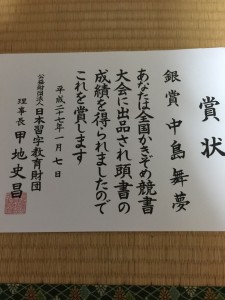 賞状
銀賞 中島舞夢
あなたは全国かきぞめ競書
大会に出品され頭書の
成績を得られましたので
これを賞します
平成二十七年一月七日
公益財団法人日本習字教育財団
理事長 甲地史昌